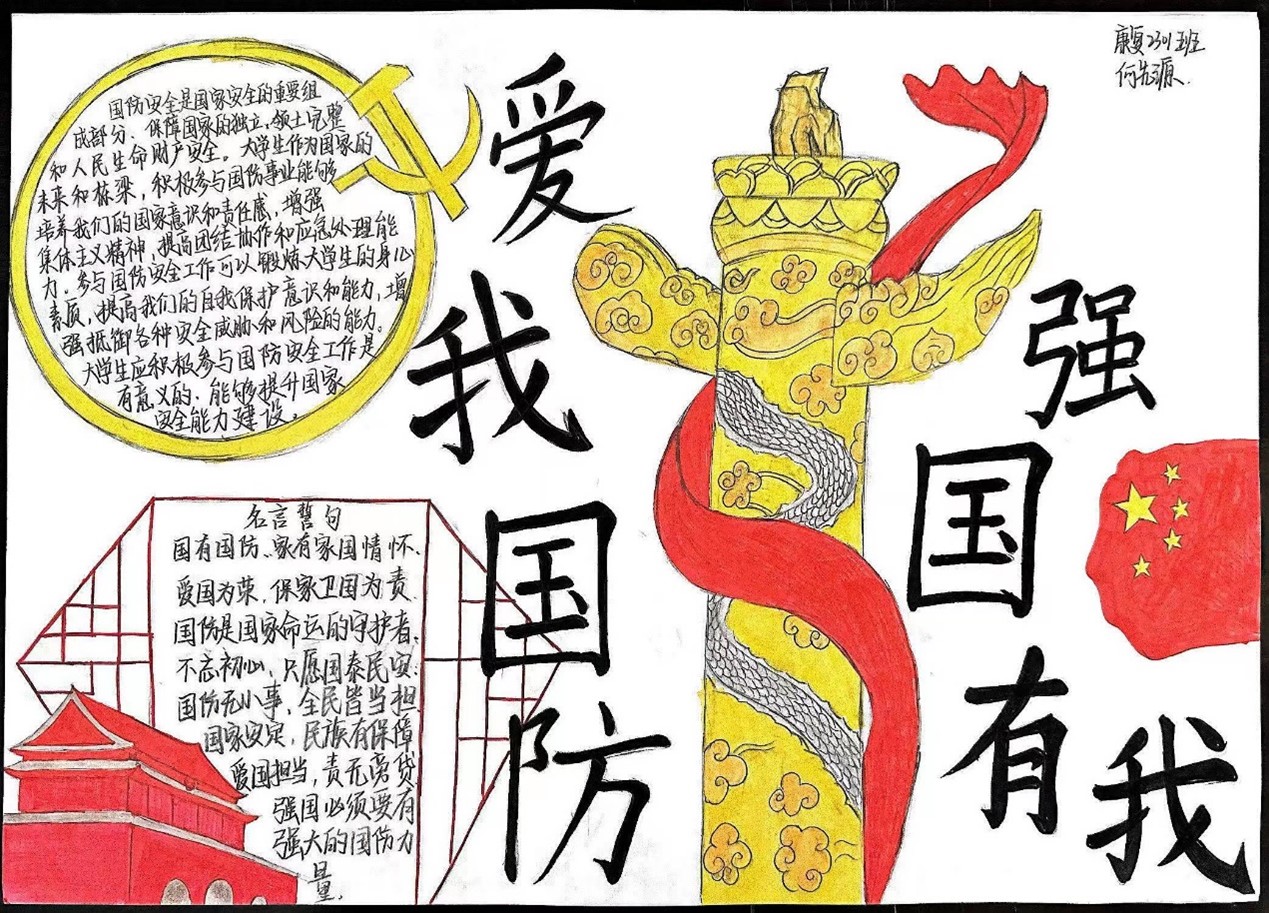 康复2301班
何先源
爱我国防
强国有我
国防安全是国家安全的重要组
成部分、保障国家的独立,领土完整
和人民生命财产安全。大学生作为国家的
未来和栋梁,积极参与国防事业能够
培养我们的国家意识和责任感,增强
集体主义精神,提高团结协作和应急处理能
力.参与国防安全工作可以锻炼大学生的身心
素质,提高我们的自我保护意识和能力,增
强抵御各种安全威胁和风险的能力。
大学生应积极参与国防安全工作是
有意义的、能够提升国家
安全能力建设。
名言誓句
国有国防、家有家国情怀、
爱国为荣,保家卫国为责.
国防是国家命运的守护者、
不忘初心,只愿国泰民安:
国防无小事,全民皆当担.
国家安定,民族有保障
爱国担当,责无旁贷
强国必须要有
强大的国防力
量.